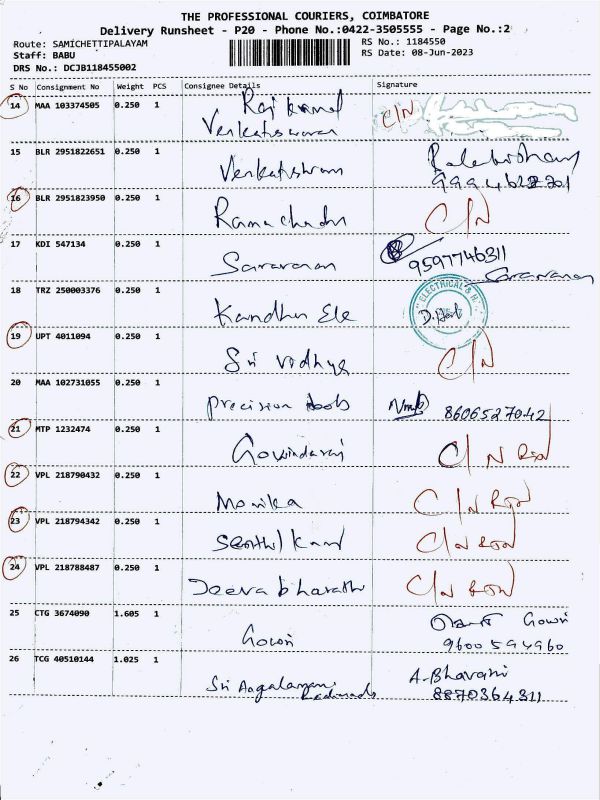 THE PROFESSIONAL COURIERS, COIMBATORE
Delivery Runsheet - P20 - Phone No.:0422-3505555 - Page No.:2
Route: SAMICHETTIPALAYAM RS No.: 1184550
Staff: BABU RS Date: 08-Jun-2023
DRS No.: DCJB118455002
S No Consignment No Weight PCS Consignee Details Signature
14 MAA 103374505 0.250 1 Raj kamal C/N
Venkatiswaran
15 BLR 2951822651 0.250 1 Venkatiswaran
16 BLR 2951823950 0.250 1 C/N
17 KDI 547134 0.250 1 Saravanan 9597746311
Saravanan
18 TRZ 250003376 0.250 1 Kandhan Ele ELECTRICAL & H
19 UPT 4011094 0.250 1 Sri vidhya C/N
20 MAA 102731055 0.250 1 Precision tools 8606527042
21 MTP 1232474 0.250 1 Govindaraj C/N RTN
22 VPL 218790432 0.250 1 Monika C/N RTN
23 VPL 218794342 0.250 1 C/N RTN
24 VPL 218788487 0.250 1 Jeeva bharathi C/N RTN
25 CTG 3674090 1.605 1 Gowri Gowri
9600594960
26 TCG 40510144 1.025 1 Sri A-Bhavani
8870364311